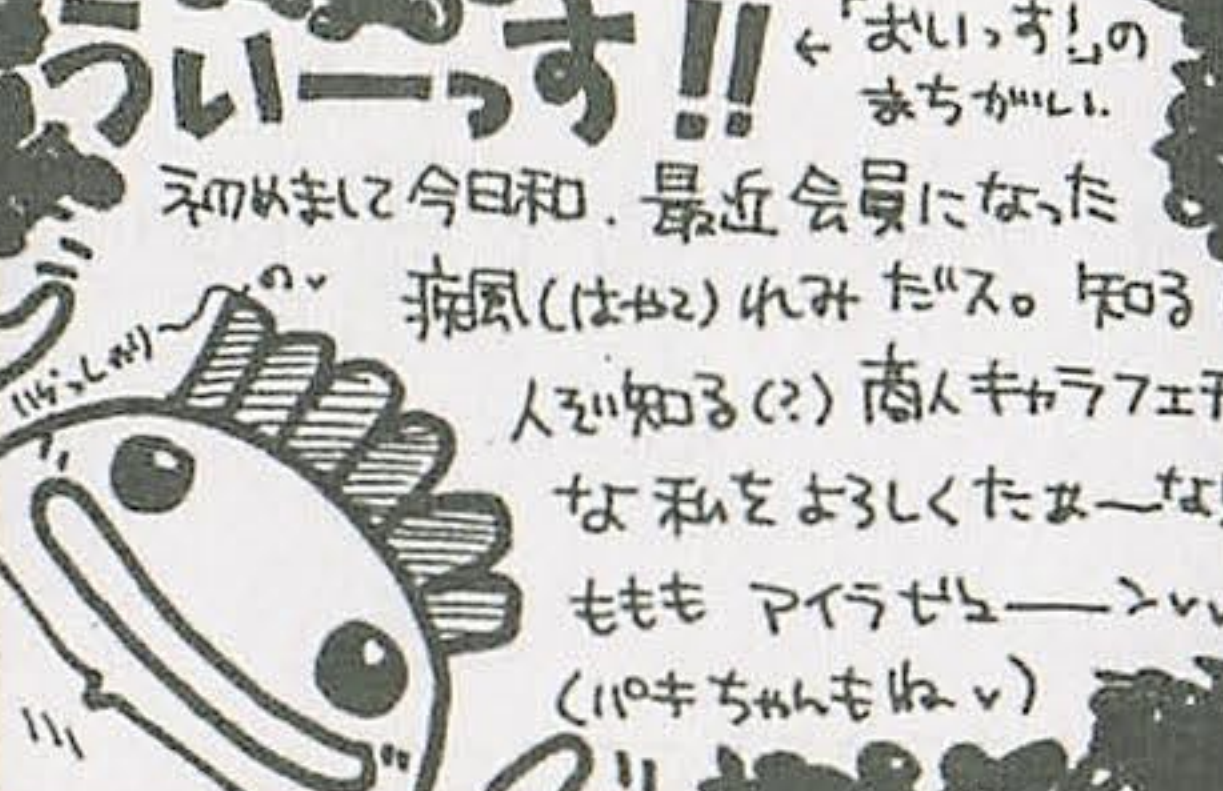 ういーっす!!
←「おいっす!」の
まちがい.
初めまして今日和.最近会員になった
疾風(はやて)れみだス。知る
人ぞ知る(?)商人キャラフェチ
な私をよろしくたぁ〜な
ももも アイラビュ――ンvv
(パキちゃんもねv)
のv